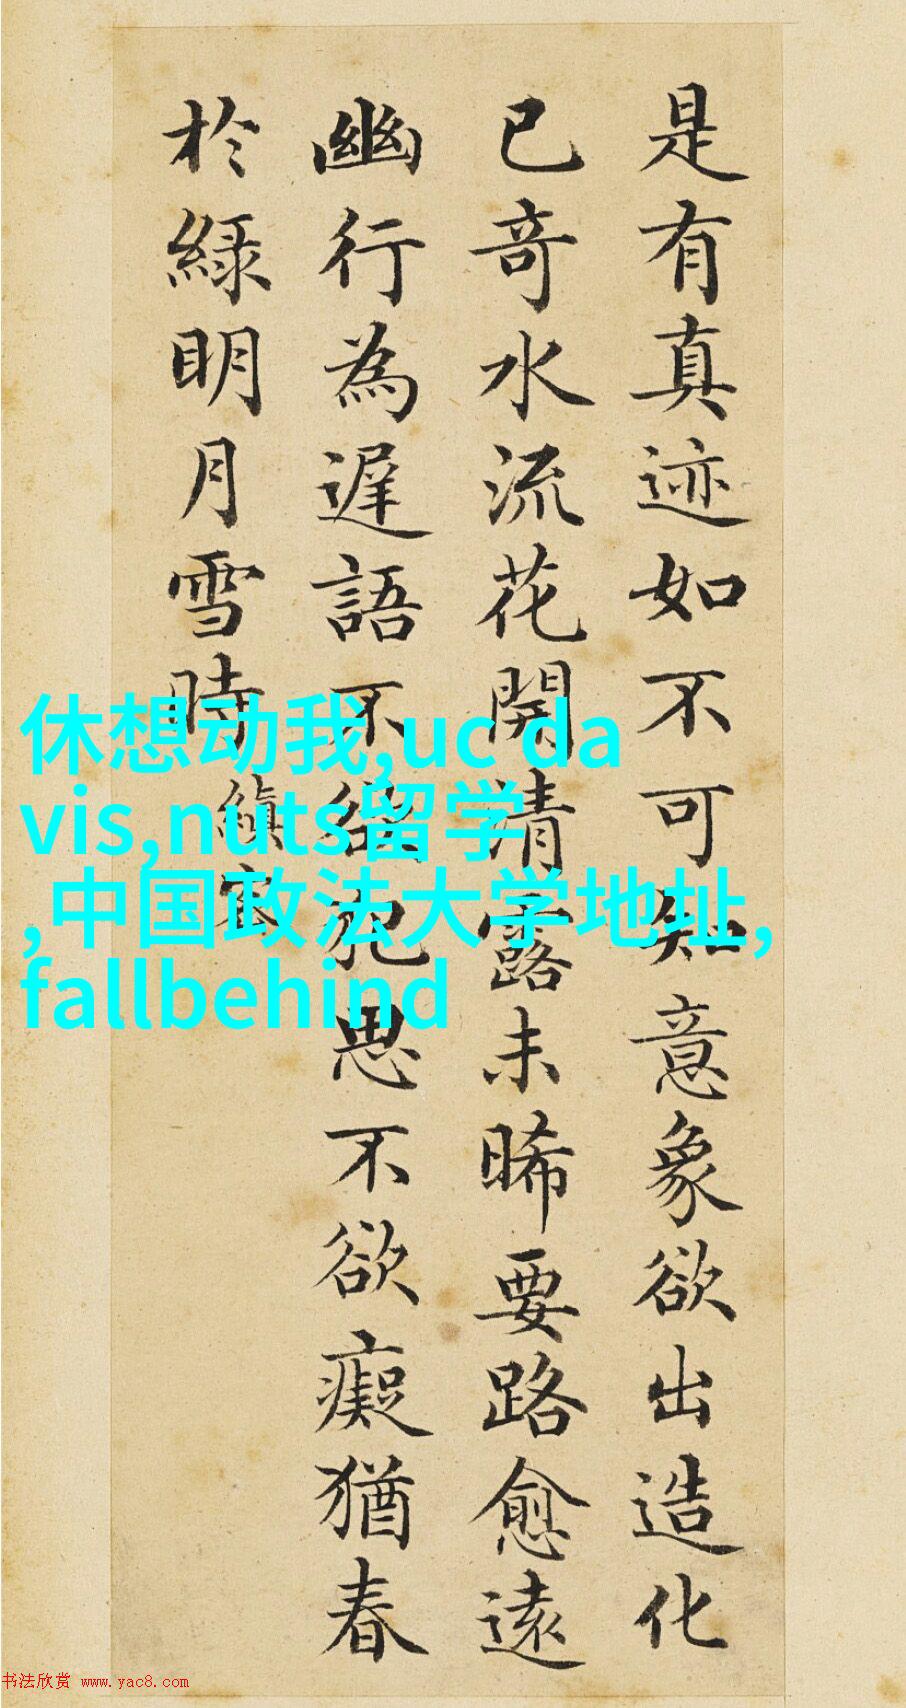 是有真迹如不可知意象欲出造化
已奇水流花開清露未晞要路愈遠
幽行為遲語不欲犯思不欲癡猶春
於綠明月雪時
休想动我,uc da
vis,nuts留学
,中国政法大学地址,
fallbehind
书法欣赏 www.yac8.com